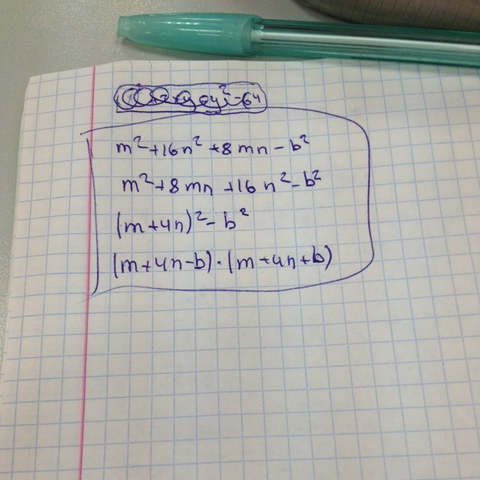 y²-64
m²+16n²+8mn-b²
m²+8mn+16n²-b²
(m+4n)²-b²
(m+4n-b)·(m+4n+b)